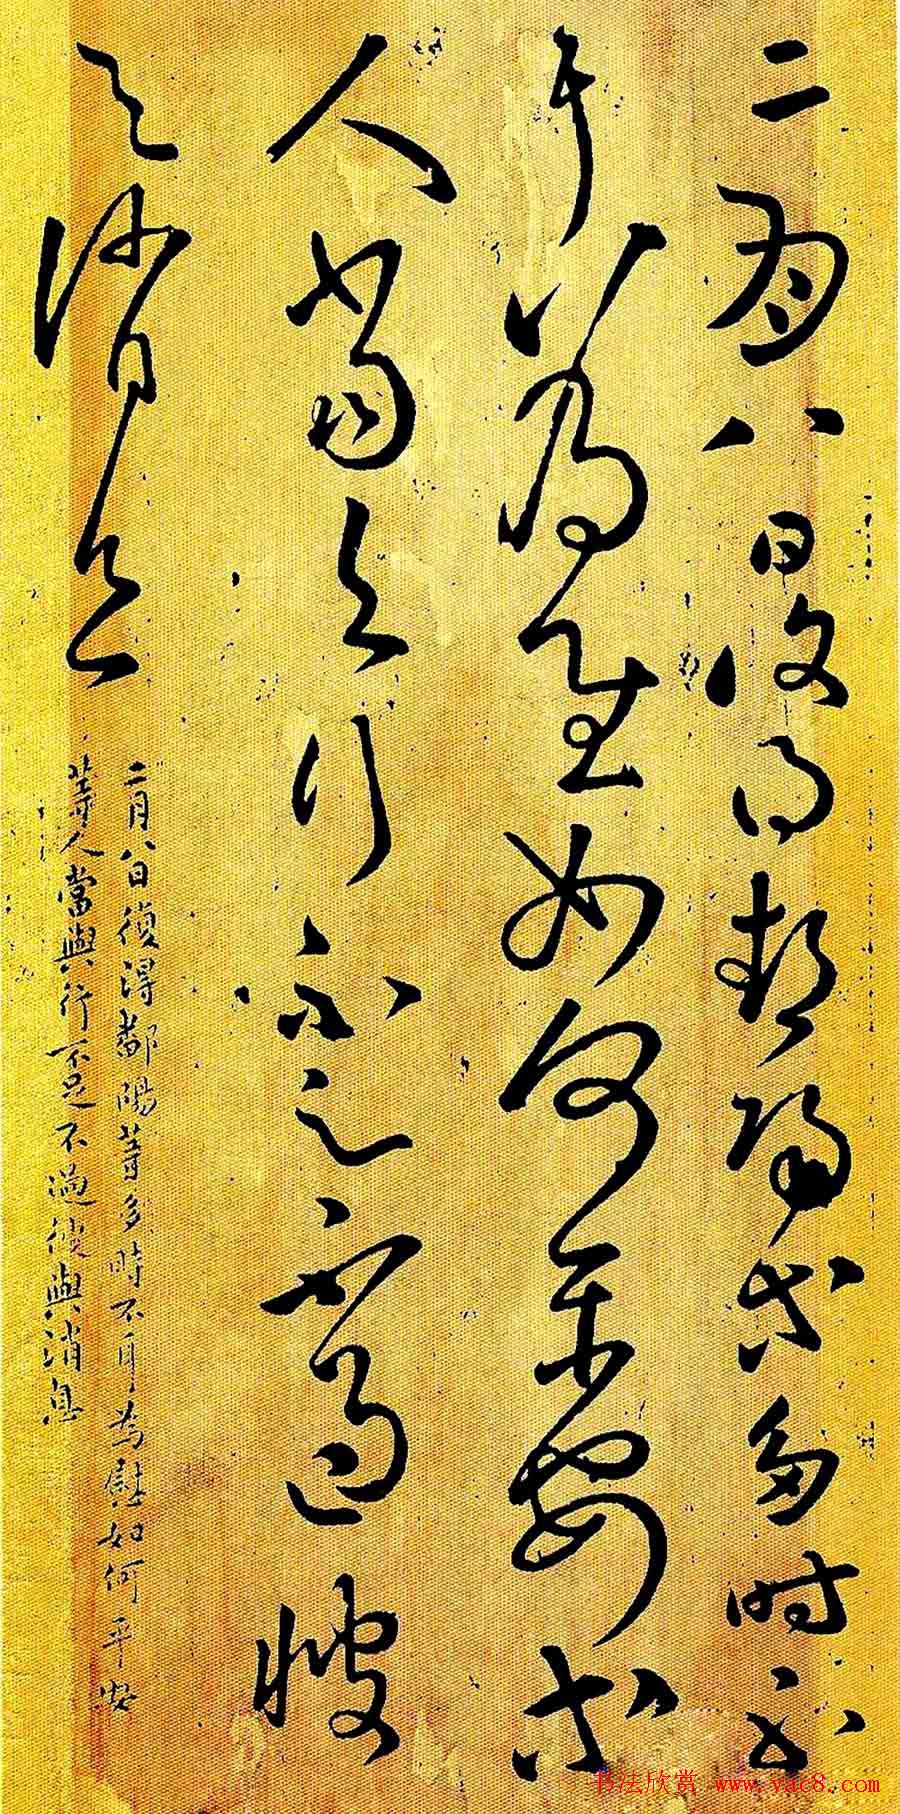 二月八日復得鄱陽等多時不
耳為慰如何平安等
人當與行不足不過
與消息
二月八日復得鄱陽等多時不耳為慰如何平安
等人當與行不足不過與消息
书法欣赏 www.yac8.com